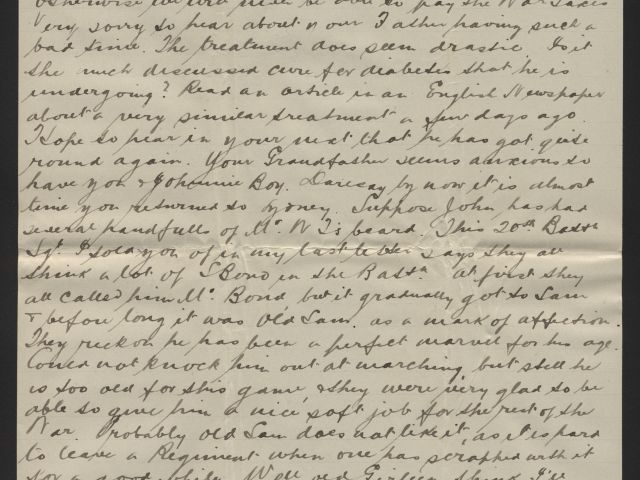 otherwise we will never be able to pay the War Taxes
Very sorry to hear about your Father having such a
bad time. The treatment does seem drastic. Is it
the much discussed cure for diabetes that he is
undergoing? Read an article in an English Newspaper
about a very similar treatment a few days ago.
Hope to hear in your next that he has got quite
round again. Your Grandfather seems anxious to
have you & Johnnie Boy. Daresay by now it is almost
time you returned to Sydney. Suppose John has had
several handfulls of Mr. W T's beard. This 20th Battn
Sgt. I told you of in my last letter says they all
think a lot of S Bond in the Battn at first they
all called him Mr. Bond but it gradually got to Sam
& before long it was Old Sam. as a mark of affection.
They reckon he has been a perfect marvel for his age.
Could not knock him out at marching, but still he
is too old for this game & they were very glad to be
able to give him a nice soft job for the rest of the
War. Probably old Sam does not like it, as it is hard
to leave a Regiment when one has scrapped with it
for a good while. Well old Girlie think I'll